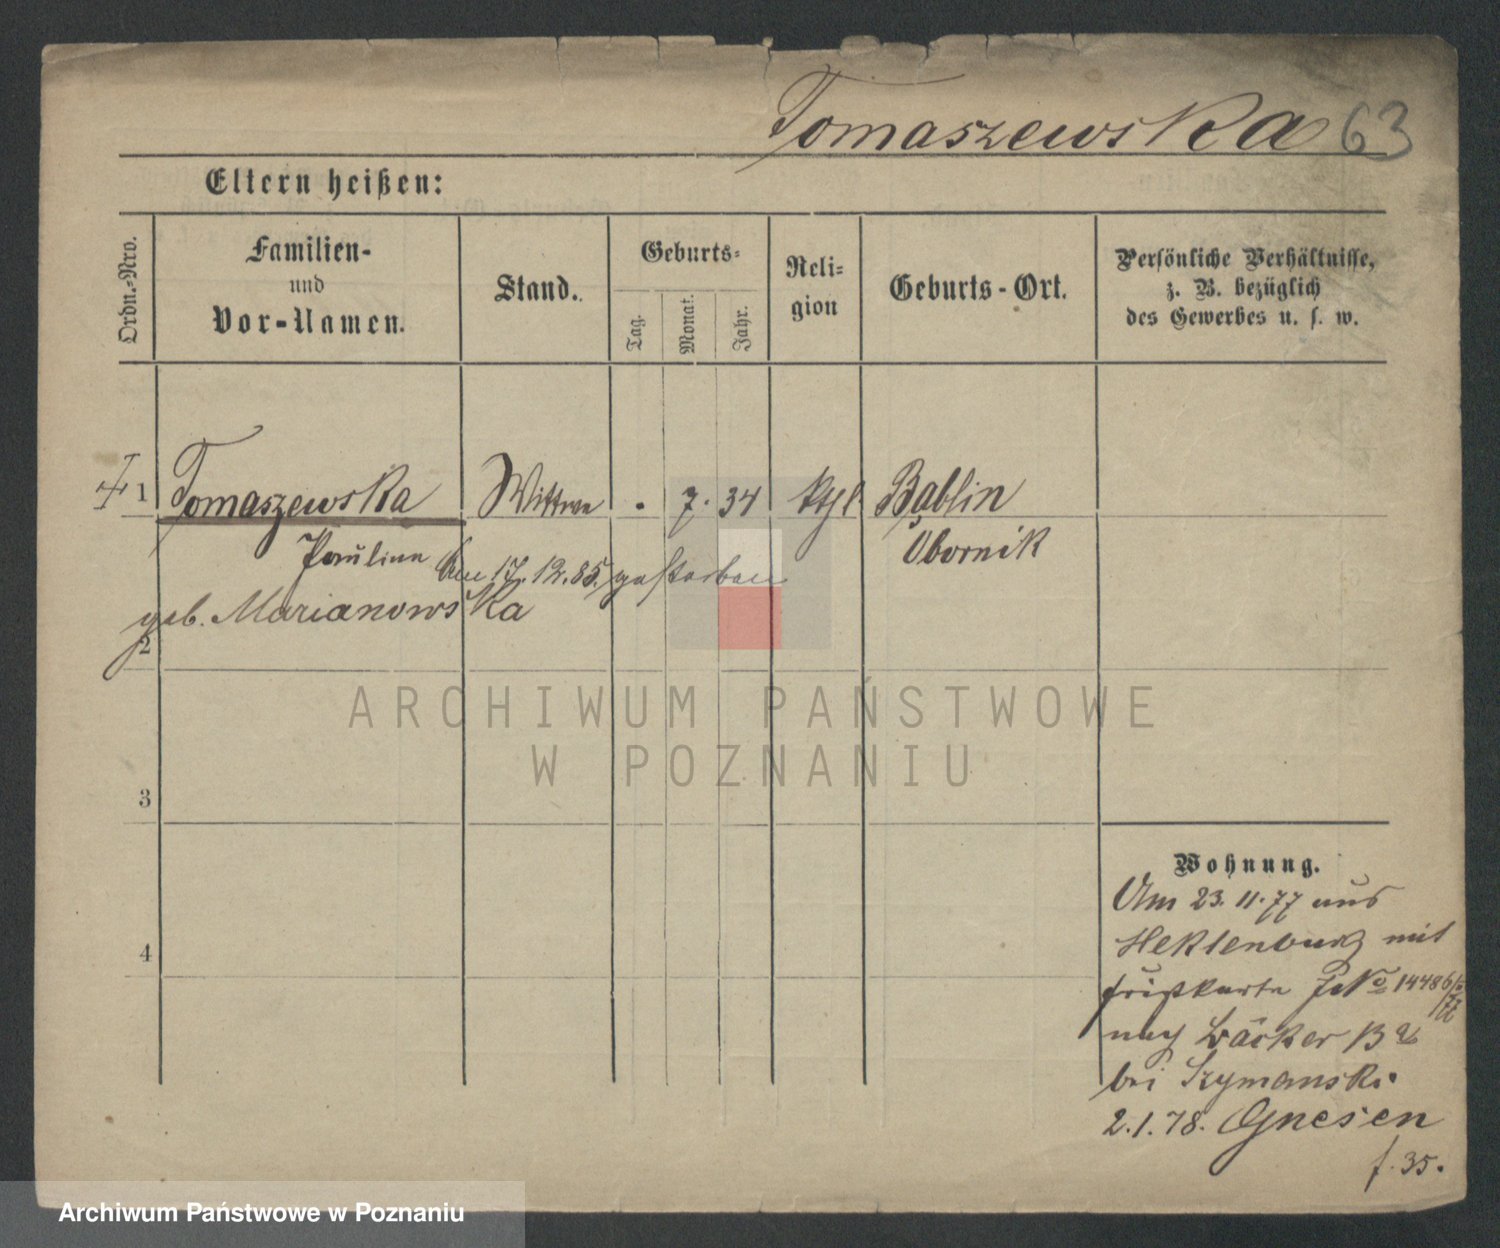 Tomaszewska 63
Eltern heißen:
Ordn.-Nro.
Familien-
und
Vor-Namen.
Stand.
Geburts-
Tag.
Monat.
Jahr.
Reli-
gion
Geburts-Ort.
Persönliche Verhältnisse,
z. B. bezüglich
des Gewerbes u. s. w.
1 Tomaszewska Wittwe . 7. 34 ktl Bablin
Pauline Obornik
Am 17.12.85. gestorben
geb. Marianowska
2
3
4
Wohnung.
Am 23.11.77 aus
mit
No 14486
nach Bäcker
bei Szymanski.
2.1.78. Gnesen
f. 35.
ARCHIWUM PAŃSTWOWE
W POZNANIU
Archiwum Państwowe w Poznaniu